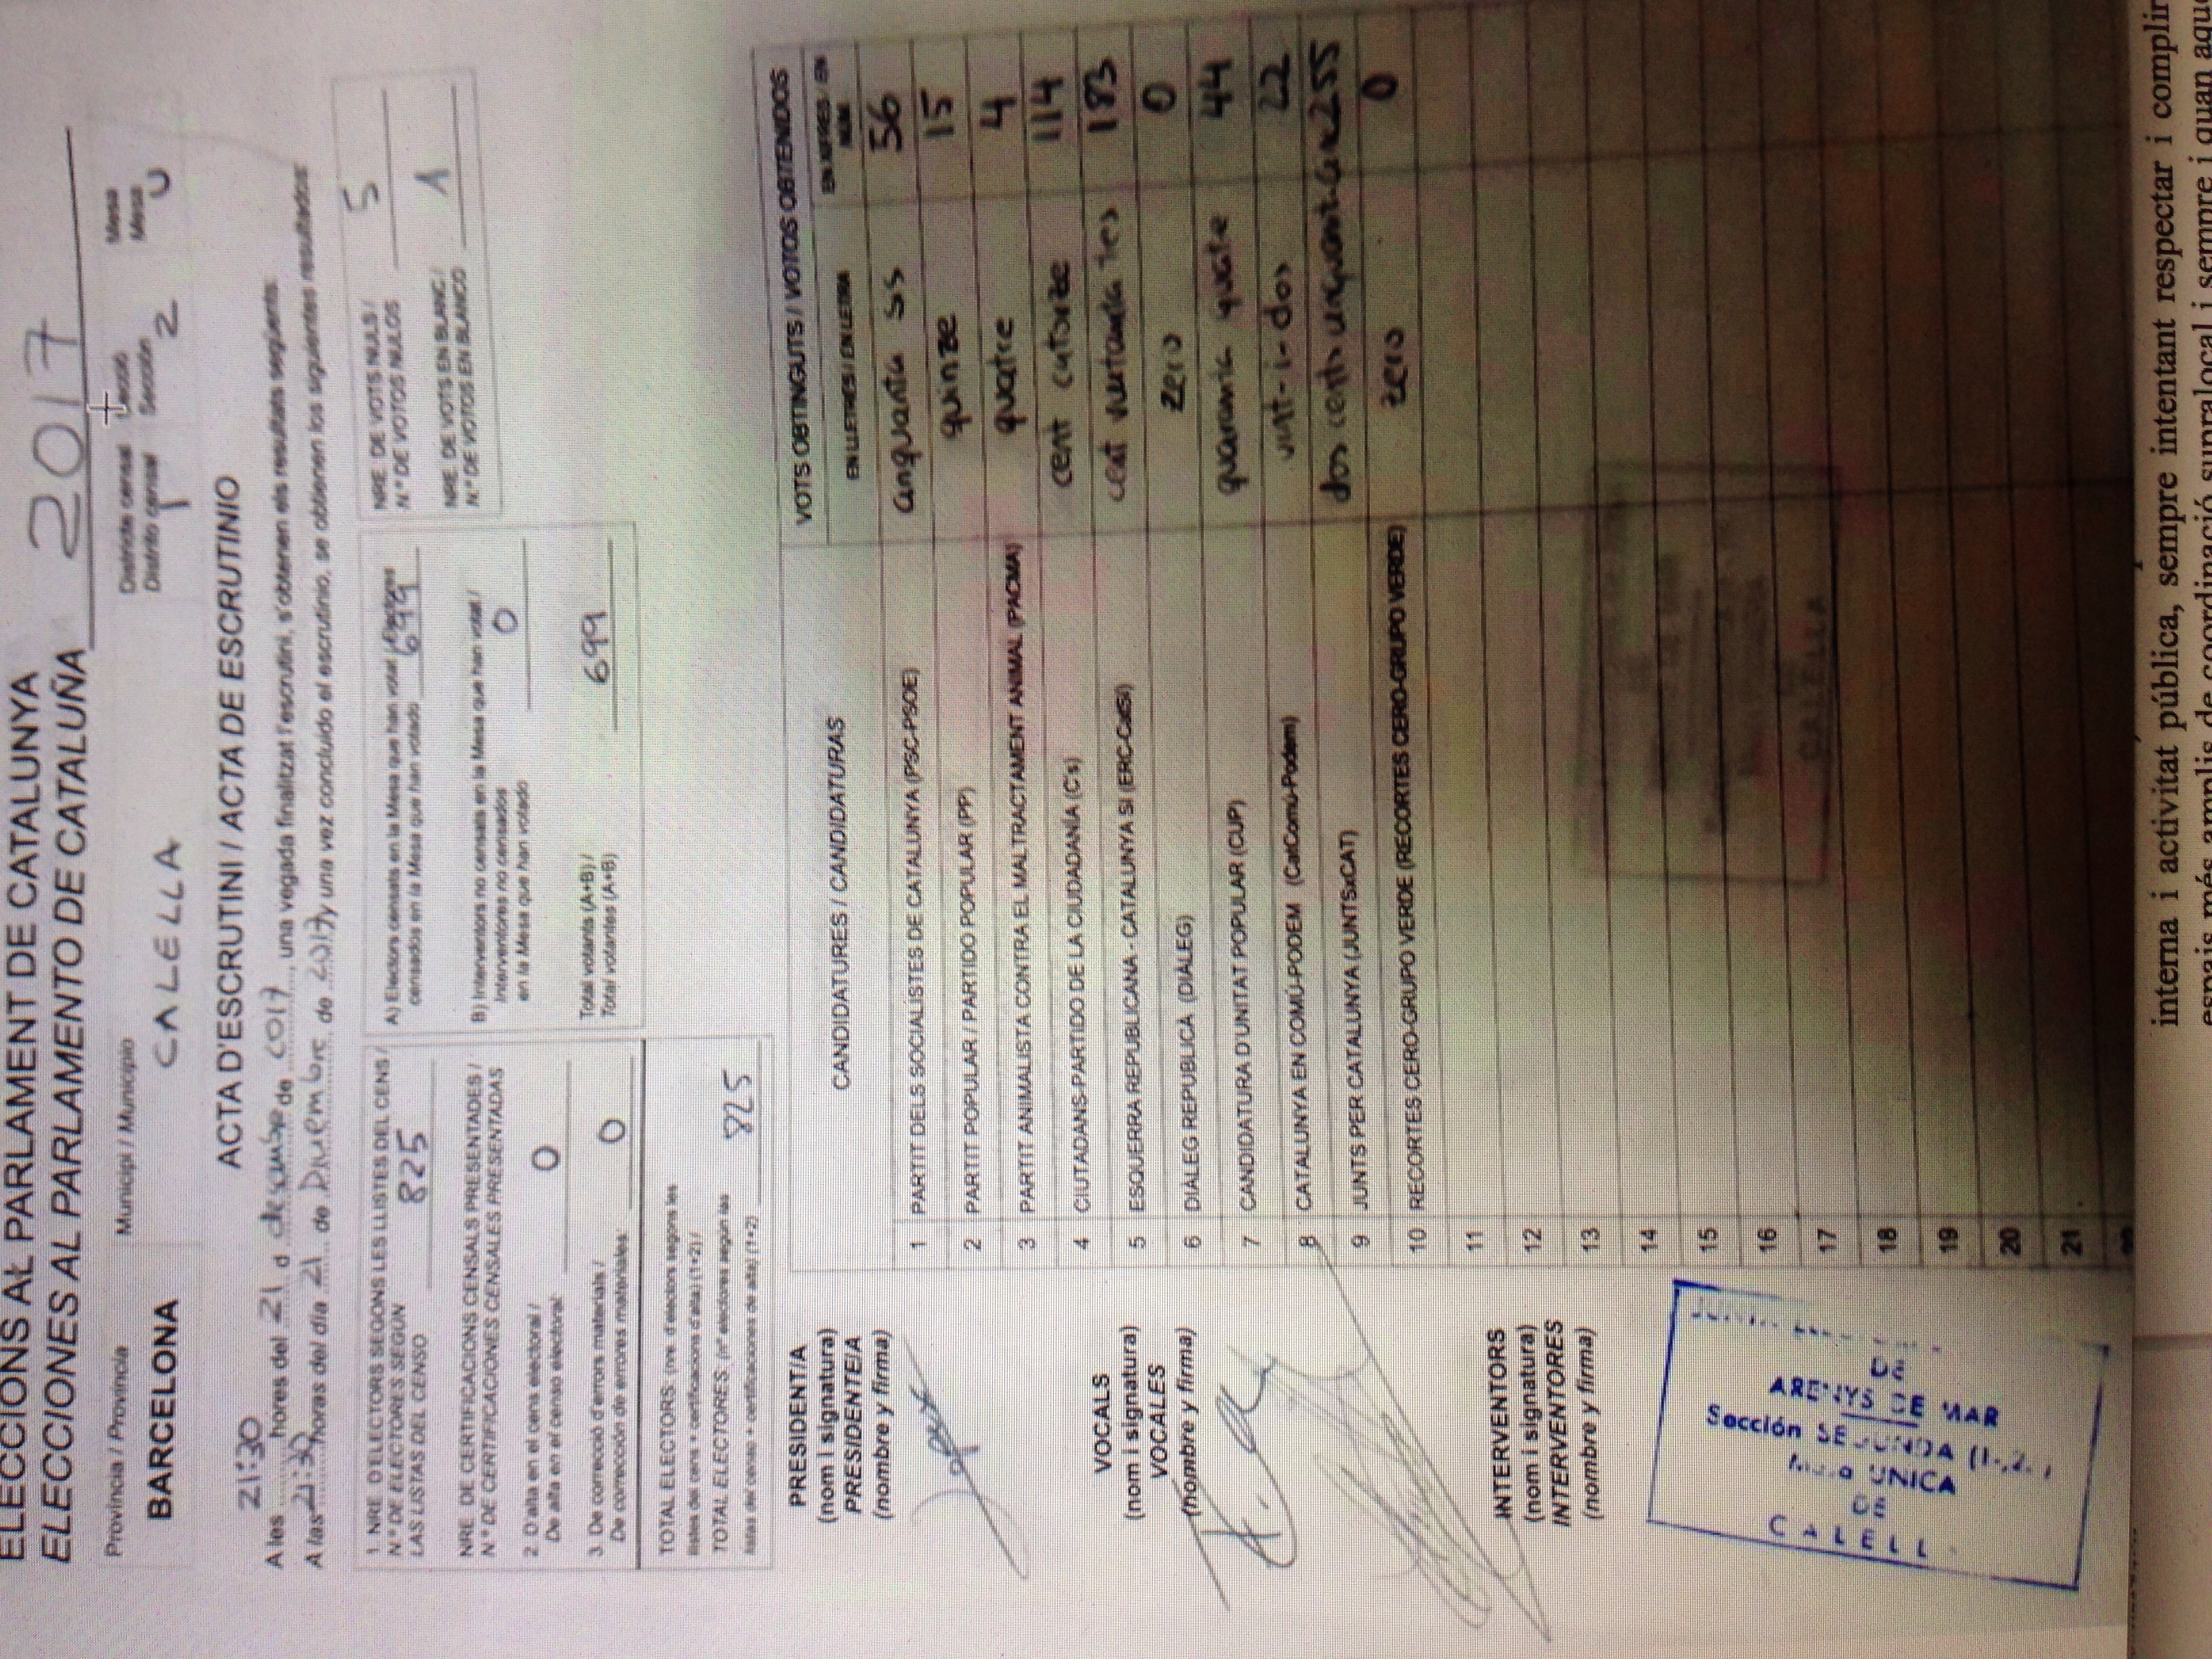 ELECCIONS AL PARLAMENT DE CATALUNYA
ELECCIONES AL PARLAMENTO DE CATALUÑA 2017
Província / Provincia
Municipi / Municipio
Districte censal
Distrito censal
Secció
Sección
Mesa
Mesa
BARCELONA
CALELLA
1
2
U
ACTA D'ESCRUTINI / ACTA DE ESCRUTINIO
21:30
A les ........ hores del 21 d de 2017, una vegada finalitzat l'escrutini, s'obtenen els resultats següents:
A las 21:30 horas del día 21 de de 2017 y una vez concluido el escrutinio, se obtienen los siguientes resultados:
1. NRE. D'ELECTORS SEGONS LES LLISTES DEL CENS /
N.º DE ELECTORES SEGÚN
LAS LISTAS DEL CENSO 825
NRE. DE CERTIFICACIONS CENSALS PRESENTADES /
N.º DE CERTIFICACIONES CENSALES PRESENTADAS
2. D'alta en el cens electoral /
De alta en el censo electoral: 0
3. De correcció d'errors materials /
De corrección de errores materiales: 0
TOTAL ELECTORS: (nre. d'electors segons les
llistes del cens + certificacions d'alta) (1+2) /
TOTAL ELECTORES: (nº electores según las
listas del censo + certificaciones de alta) (1+2) 825
A) Electors censats en la Mesa que han votat / Electores
censados en la Mesa que han votado 699
B) Interventors no censats en la Mesa que han votat /
Interventores no censados
en la Mesa que han votado 0
Total votants (A+B) /
Total votantes (A+B) 699
NRE. DE VOTS NULS /
N.º DE VOTOS NULOS 5
NRE. DE VOTS EN BLANC /
N.º DE VOTOS EN BLANCO 1
PRESIDENT/A
(nom i signatura)
PRESIDENTE/A
(nombre y firma)
VOCALS
(nom i signatura)
VOCALES
(nombre y firma)
INTERVENTORS
(nom i signatura)
INTERVENTORES
(nombre y firma)
CANDIDATURES / CANDIDATURAS
VOTS OBTINGUTS / VOTOS OBTENIDOS
EN LLETRES / EN LETRA
EN XIFRES / EN
NÚM.
1 PARTIT DELS SOCIALISTES DE CATALUNYA (PSC-PSOE) cinquanta sis 56
2 PARTIT POPULAR / PARTIDO POPULAR (PP) quinze 15
3 PARTIT ANIMALISTA CONTRA EL MALTRACTAMENT ANIMAL (PACMA) quatre 4
4 CIUTADANS-PARTIDO DE LA CIUDADANÍA (C's) cent catorze 114
5 ESQUERRA REPUBLICANA - CATALUNYA SI (ERC-CatSí) cent tres 183
6 DIÀLEG REPUBLICÀ (DIÀLEG) zero 0
7 CANDIDATURA D'UNITAT POPULAR (CUP) quaranta quatre 44
8 CATALUNYA EN COMÚ-PODEM (CatComú-Podem) vint-i-dos 22
9 JUNTS PER CATALUNYA (JUNTSxCAT) dos cents 255
10 RECORTES CERO-GRUPO VERDE (RECORTES CERO-GRUPO VERDE) zero 0
11
12
13
14
15
16
17
18
19
20
21
DE
ARENYS DE MAR
Sección
UNICA
DE
CALELLA
interna i activitat pública, sempre intentant respectar i complir
espais més amplis de coordinació supralocal i sempre i quan